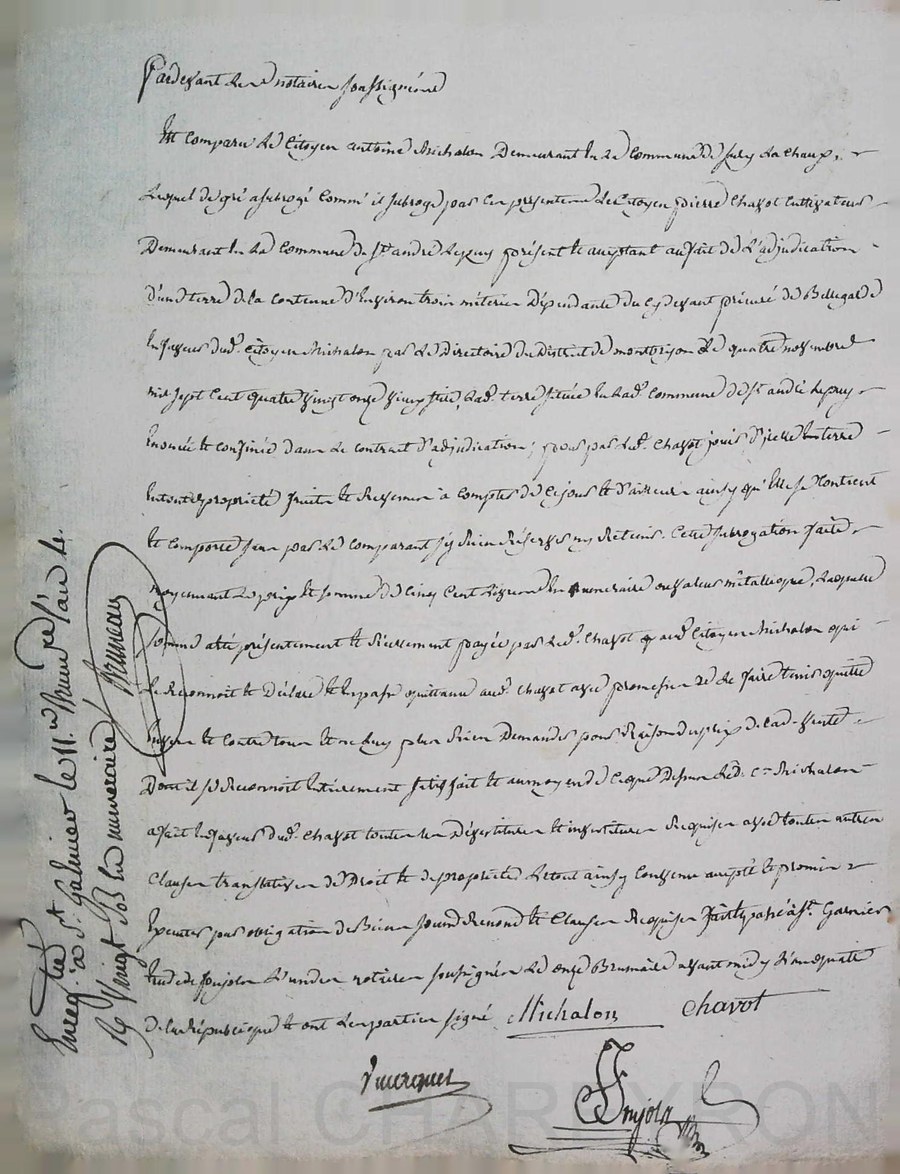 Pardevant les notaires soussignés
Est comparu le Citoyen antoine Michalon Demeurant en la Commune de Sury la Chaux,
Lequel de gré a subrogé comm'il subroge par ces présentes le Citoyen pierre Chavot cultivateur
Demeurant en la Commune de St. andré le puy présent et acceptant au fait de l'adjudication
d'une terre de la contenue d'environ trois méterées Dépendante du cy devant prieuré de Bellegarde
en faveur dud. Citoyen Michalon par le Directoire du District de montbrison le quatre novembre
mil sept cent quatre vingt onze vieux stile, lad. terre située en lad. commune de St. andré le puy
enoncée et confinée dans le contrat d'adjudication; pour par led. Chavot jouir d'icelle terre
en toute propriété fruits et revenus à compter de ce jour et d'ailleurs ainsy qu'elle se Contient
et comporte sans par le comparant s'y rien réserver ny retenir. Cette subrogation faite
moyennant le prix et somme de Cinq Cent livres en numeraire ou valeur métallique, laquelle
somme a été présentement et réellement payée par led. Chavot aud. Citoyen Michalon qui
le reconnoit et déclare et en passe quittance aud. Chavot avec promesse de le faire tenir quitte
envers et contre tous et ne luy plus rien Demander pour raison du prix de lad. vente
Dont il se reconnoit entièrement satisfait et au moyen de ce que Dessus led. C.en Michalon
a fait en faveur dud. Chavot toutes les Dévestitures et investitures requises avec toutes autres
Clauses translatives de Droit et de propriété le tout ainsy convenu accepté et promis
Executer par obligation de Biens soumis renoncé et Clauses requises fait et passé à St. Galmier
Etude de Soujola l'un des notaires soussignés le onze Brumaire avant midy l'an quatre
de la république et ont les parties signé Michalon Chavot
Soujola
Enreg.tré à St. Galmier le 11.e Brum.re l'an 4.e
R. vingt sols en numéraire Bruneau